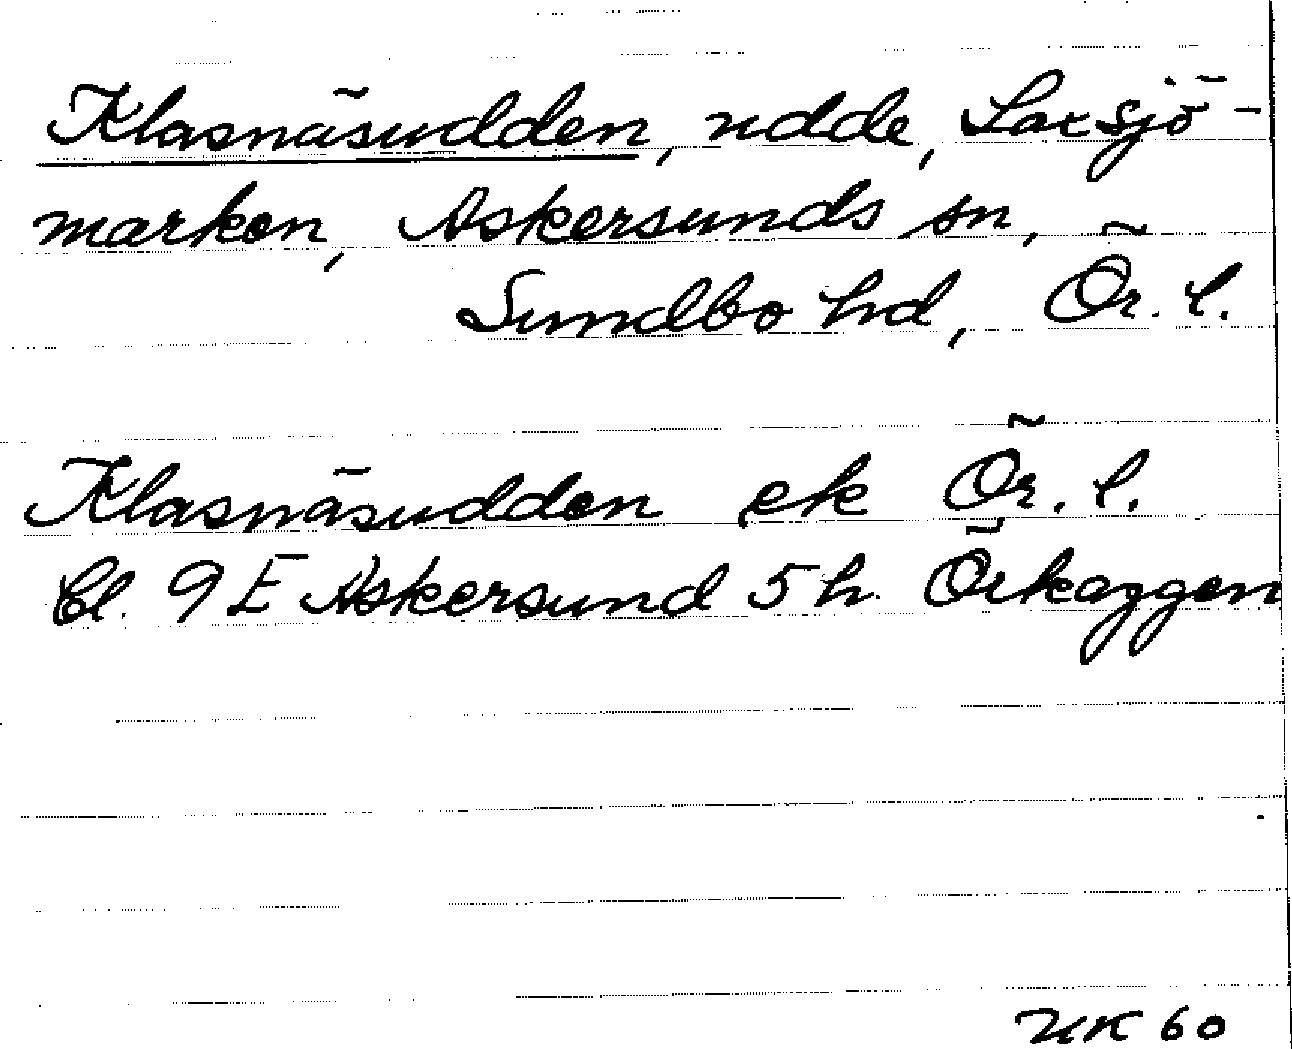 Klasnäsudden, udde, Laxsjö-
marken, Askersunds sn,
Sundbo hd, Ör. l.
Klasnäsudden ek Ör. l.
Bl. 9 E Askersund 5 h Örkaggen
UK 60